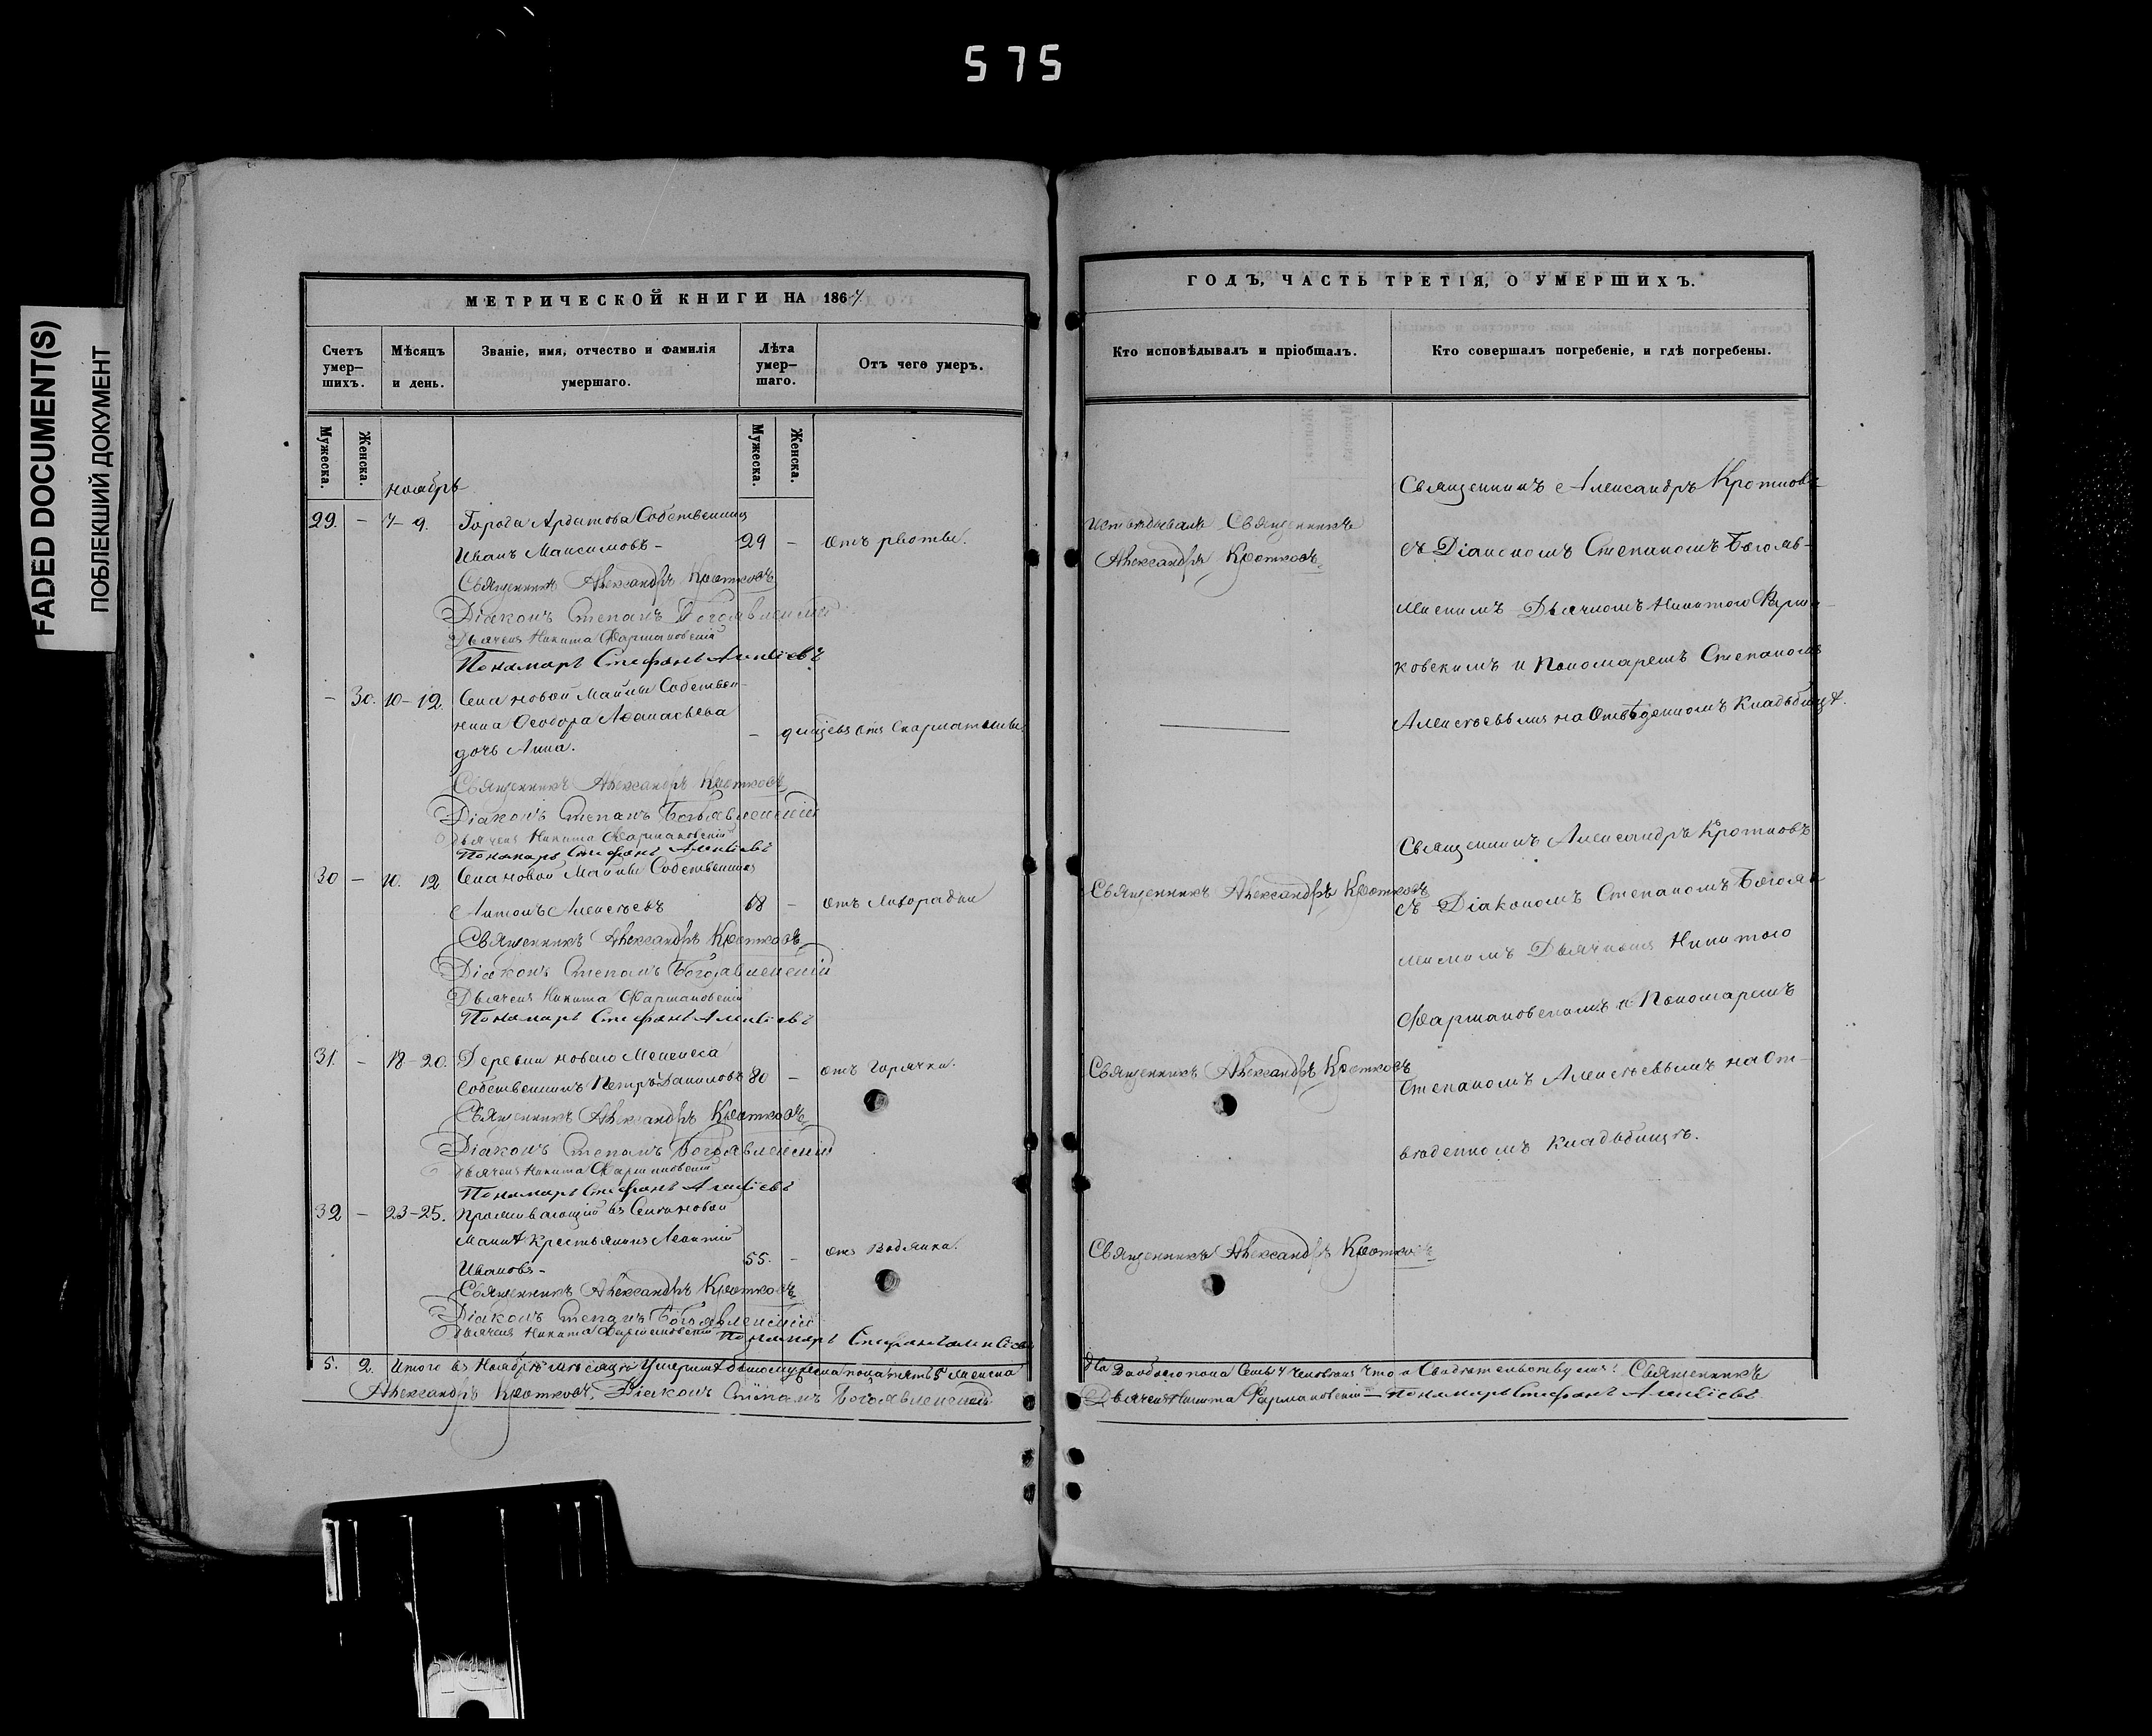 575
FADED DOCUMENT(S)
ПОБЛЕКШИЙ ДОКУМЕНТ
МЕТРИЧЕСКОЙ КНИГИ НА 1867.
Счетъ умер-шихъ.
Мѣсяцъ и день.
Званіе, имя, отчество и фамилія умершаго.
Лѣта умер-шаго.
Отъ чего умеръ.
Мужеска.
Женска.
Мужеска.
Женска.
ноябрь
29. – 7–9. Города Ардатова Собственникъ
Иванъ Максимовъ – 29 – отъ рвоты.
Священникъ Александръ Кротковъ
Діаконъ Степанъ Богоявленскій
Дьячекъ Никита Фармаковскій
Пономарь Стефанъ Алексѣевъ
– 30. 10–12. Села новой Майны Собствен-
ника Ѳеодора Аѳанасьева
дочь Анна. –
Священникъ Александръ Кротковъ
Діаконъ Степанъ Богоявленскій
Дьячекъ Никита Фармаковскій
Пономарь Стефанъ Алексѣевъ
30 – 10. 12 Села новой Майны Собственникъ
Антонъ Алексѣевъ 68 – отъ Лихорадки
Священникъ Александръ Кротковъ
Діаконъ Степанъ Богоявленскій
Дьячекъ Никита Фармаковскій
Пономарь Стефанъ Алексѣевъ
31. – 18–20. Деревни новаго
Собственникъ Петръ Даниловъ 80 – отъ Горячки.
Священникъ Александръ Кротковъ
Діаконъ Степанъ Богоявленскій
Дьячекъ Никита Фармаковскій
Пономарь Стефанъ Алексѣевъ
32 – 23–25. Проживающій въ Селѣ новой
Майнѣ Крестьянинъ Леонтій
Ивановъ – 55. – отъ Водянки.
Священникъ Александръ Кротковъ
Діаконъ Степанъ Богоявленскій
Дьячекъ Никита Фармаковскій Пономарь Стефанъ Алексѣевъ
5. 2. Итого въ Ноябрѣ мѣсяцѣ Умершихъ было мужеска пола пять 5 женска
Александръ Кротковъ, Діаконъ Степанъ Богоявленскій
ГОДЪ, ЧАСТЬ ТРЕТІЯ, О УМЕРШИХЪ.
Кто исповѣдывалъ и пріобщалъ.
Кто совершалъ погребеніе, и гдѣ погребены.
Исповѣдывалъ Священникъ
Александръ Кротковъ
Священникъ Александръ Кротковъ
Священникъ Александръ Кротковъ
Священникъ Александръ Кротковъ
Священникъ Александръ Кротковъ
съ Діакономъ Степаномъ Богояв-
ленскимъ Дьячкомъ Никитою Фарма-
ковскимъ и Пономаремъ Степаномъ
Алексѣевымъ на Отведенномъ Кладбищѣ.
Священникъ Александръ Кротковъ
съ Діакономъ Степаномъ Богояв
ленскимъ Дьячкомъ Никитою
Фармаковскимъ и Пономаремъ
Степаномъ Алексѣевымъ на от-
веденномъ Кладбищѣ.
два обоего пола Семь 7 Человѣкъ Что и Свидѣтельствуемъ: Священникъ
Дьячекъ Никита Фармаковскій – Пономарь Стефанъ Алексѣевъ